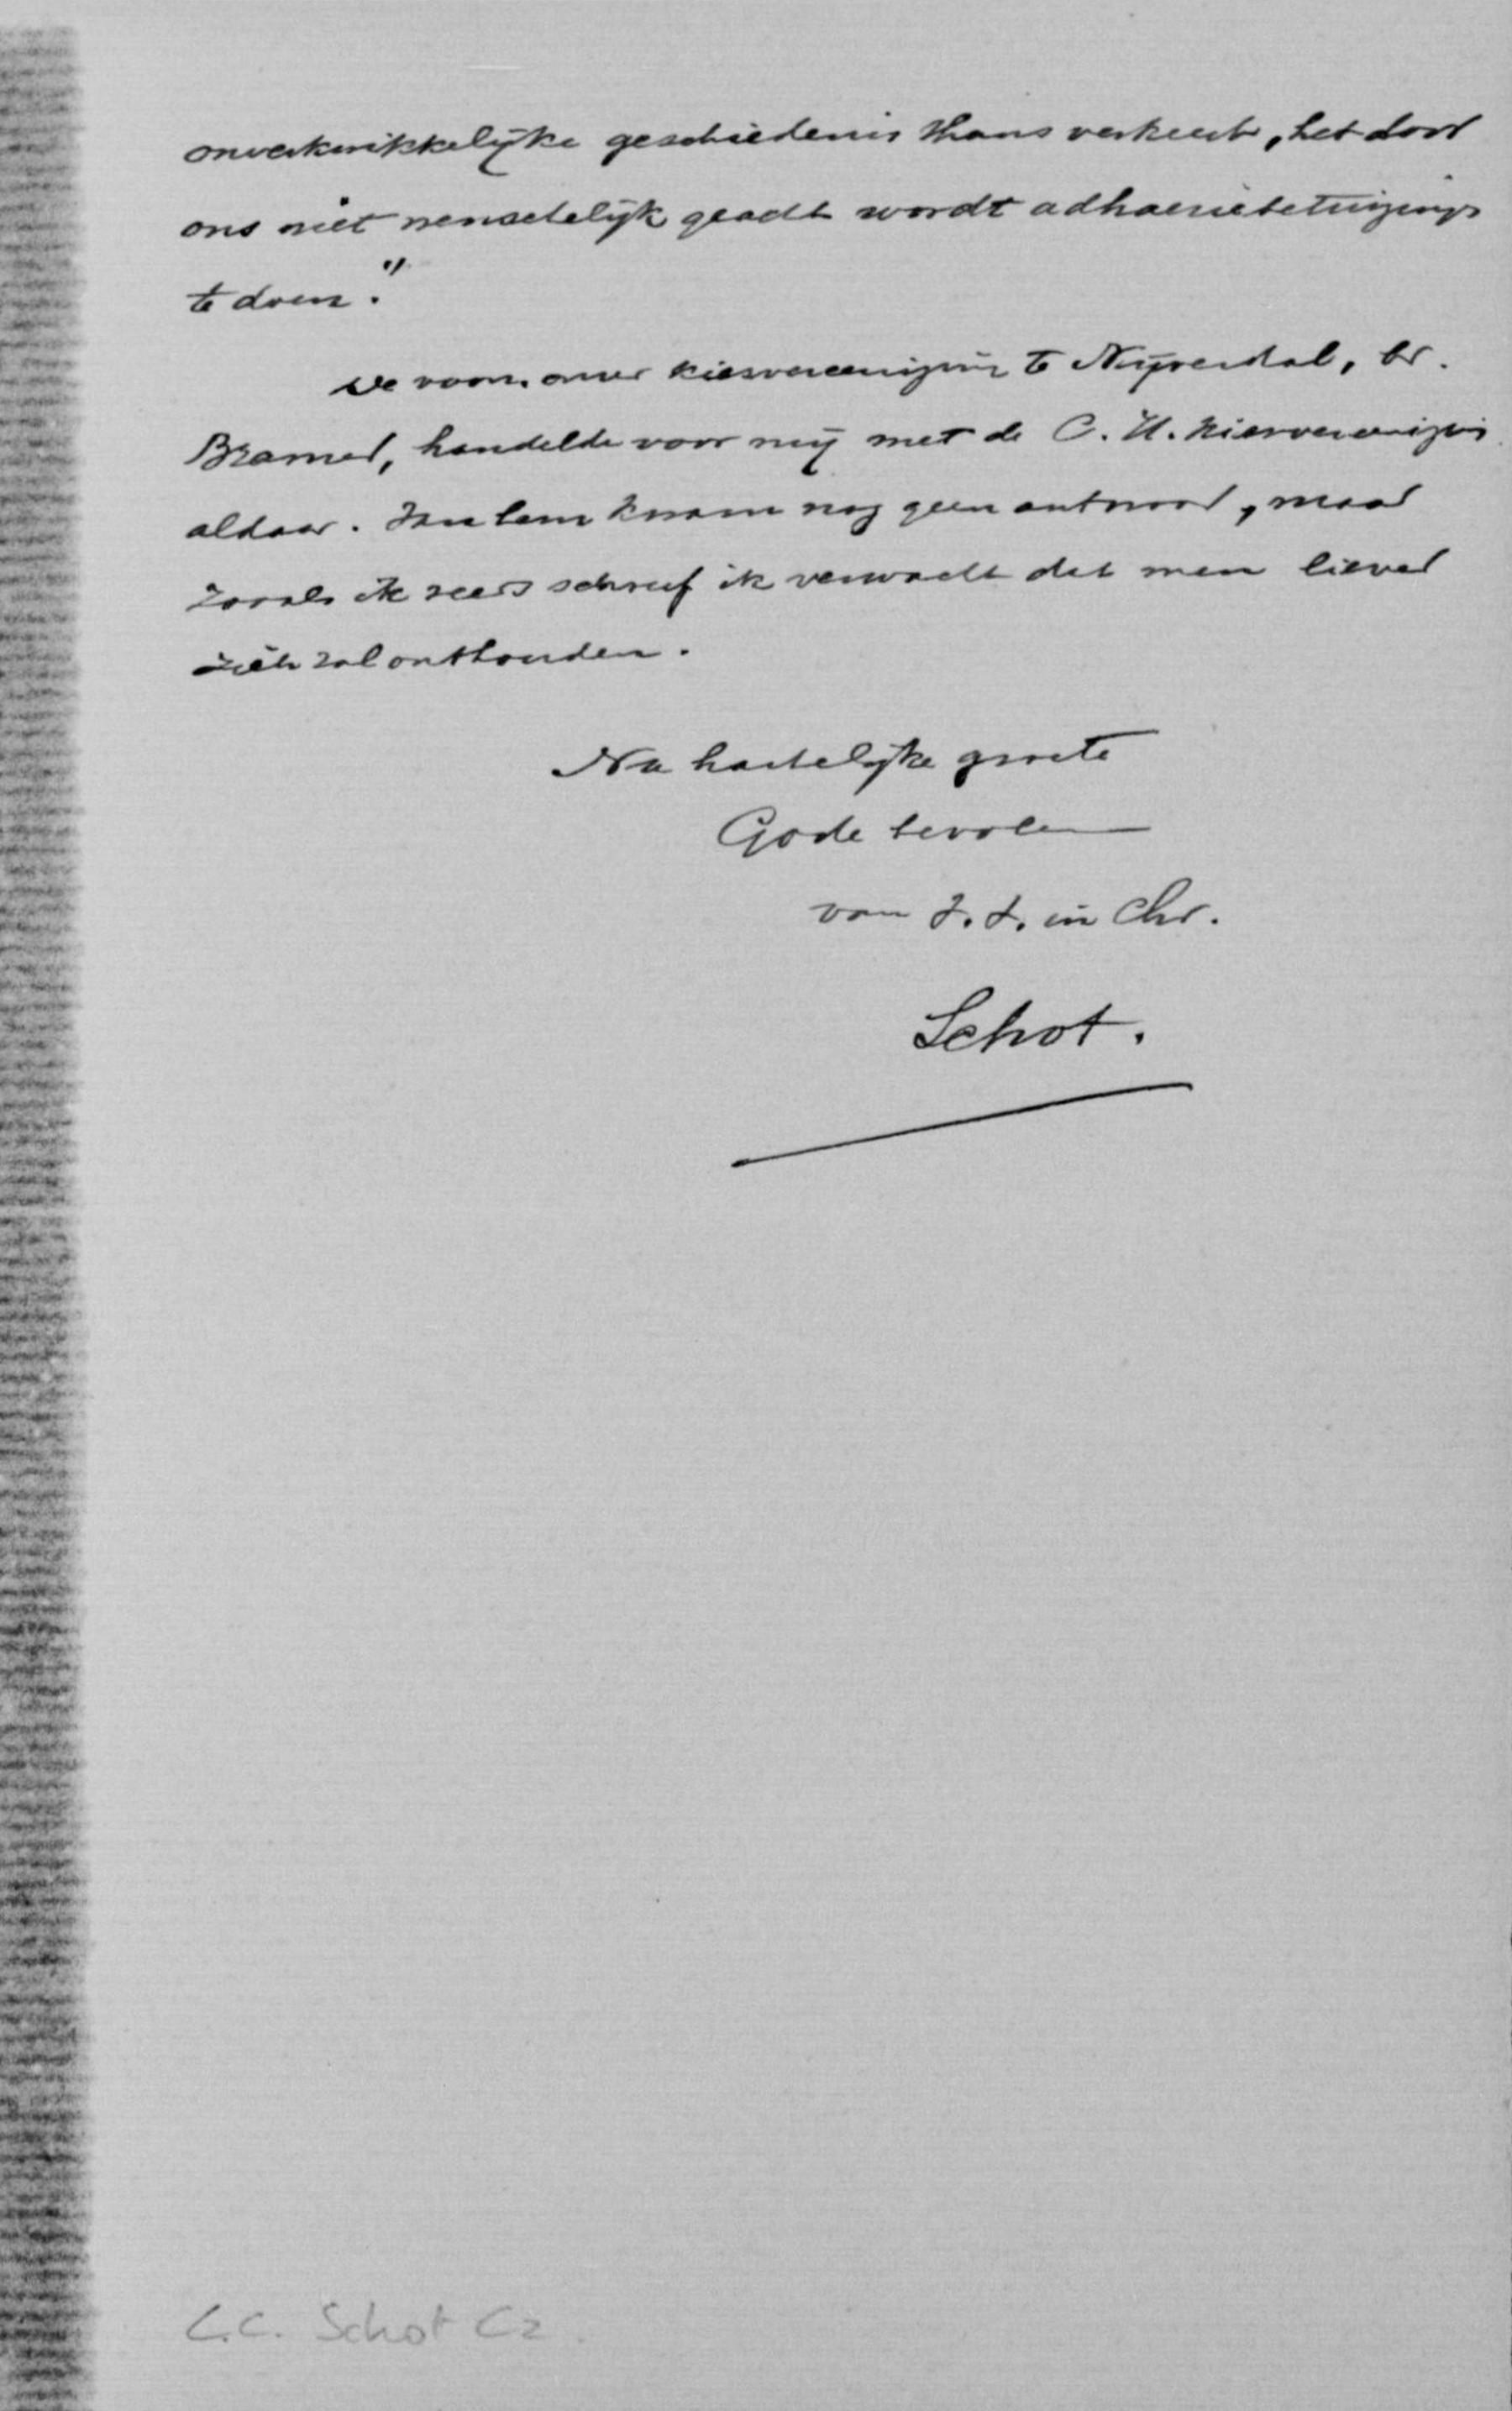 onverkwikkelijke geschiedenis thans verkeert, het door
ons niet wenschelijk geacht wordt adhaesiebetuigingen
te doen."
De voorz. onzer kiesvereeniging te Nijverdal, br.
Bramer, handelde voor mij met de C. H. kiesvereeniging
aldaar. Van hem kwam nog geen antwoord, maar
zooals ik reeds schreef ik verwacht dat men liever
zich zal onthouden.
Na hartelijke groete
Gode bevolen
van t. t. in Chr.
Schot.
C.C. Schot Cz.